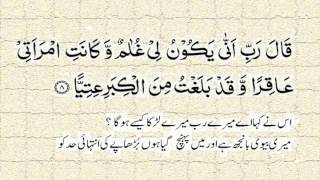 قَالَ رَبِّ اَنّٰى يَكُوْنُ لِىْ غُلٰمٌ وَّ كَانَتِ امْرَاَتِىْ
عَاقِرًا وَّ قَدْ بَلَغْتُ مِنَ الْكِبَرِ عِتِيًّا ﴿۸﴾
اس نے کہا اے میرے رب میرے لڑکا کیسے ہو گا ؟
میری بیوی بانجھ ہے اور میں پہنچ گیا ہوں بڑھاپے کی انتہائی حد کو